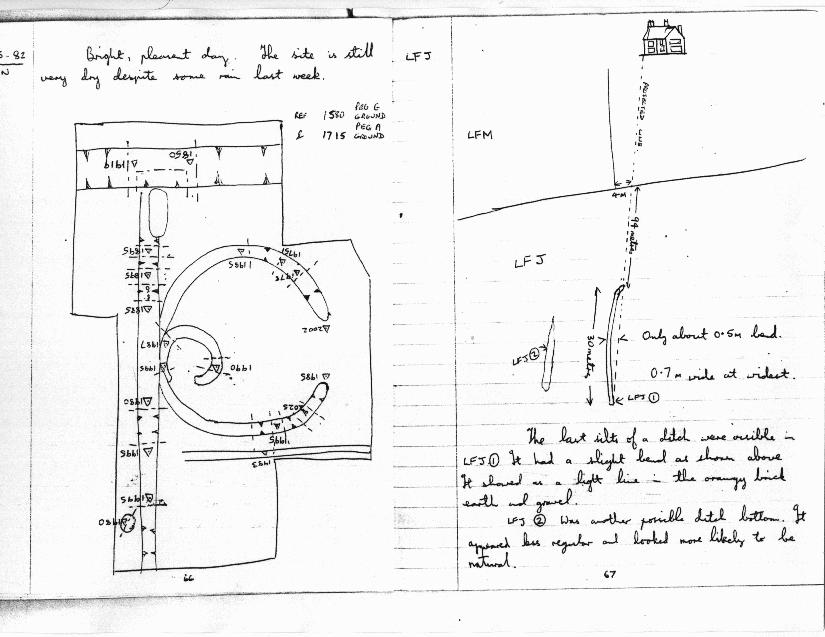 5-82
N
Bright, pleasant day. The site is still
very dry despite some rain last week.
REF 1580 PEG G GROUND
& 1715 PEG A GROUND
1919
1850
1895
1895
1885
1887
1995
1880
1995
1995
1980
1985
1975
1975
2002
1990
1985
2025
1995
1983
66
LFJ
LFM
PROJECTED LINE
4M
94 metres
LFJ
30 metres
LFJ ②
Only about 0.5m bend.
0.7m wide at widest.
LFJ ①
The last silts of a ditch were visible in
LFJ ① It had a slight bend as shown above
It showed as a light line in the orangy brick
earth and gravel.
LFJ ② Was another possible ditch bottom. It
appeared less regular and looked more likely to be
natural.
67